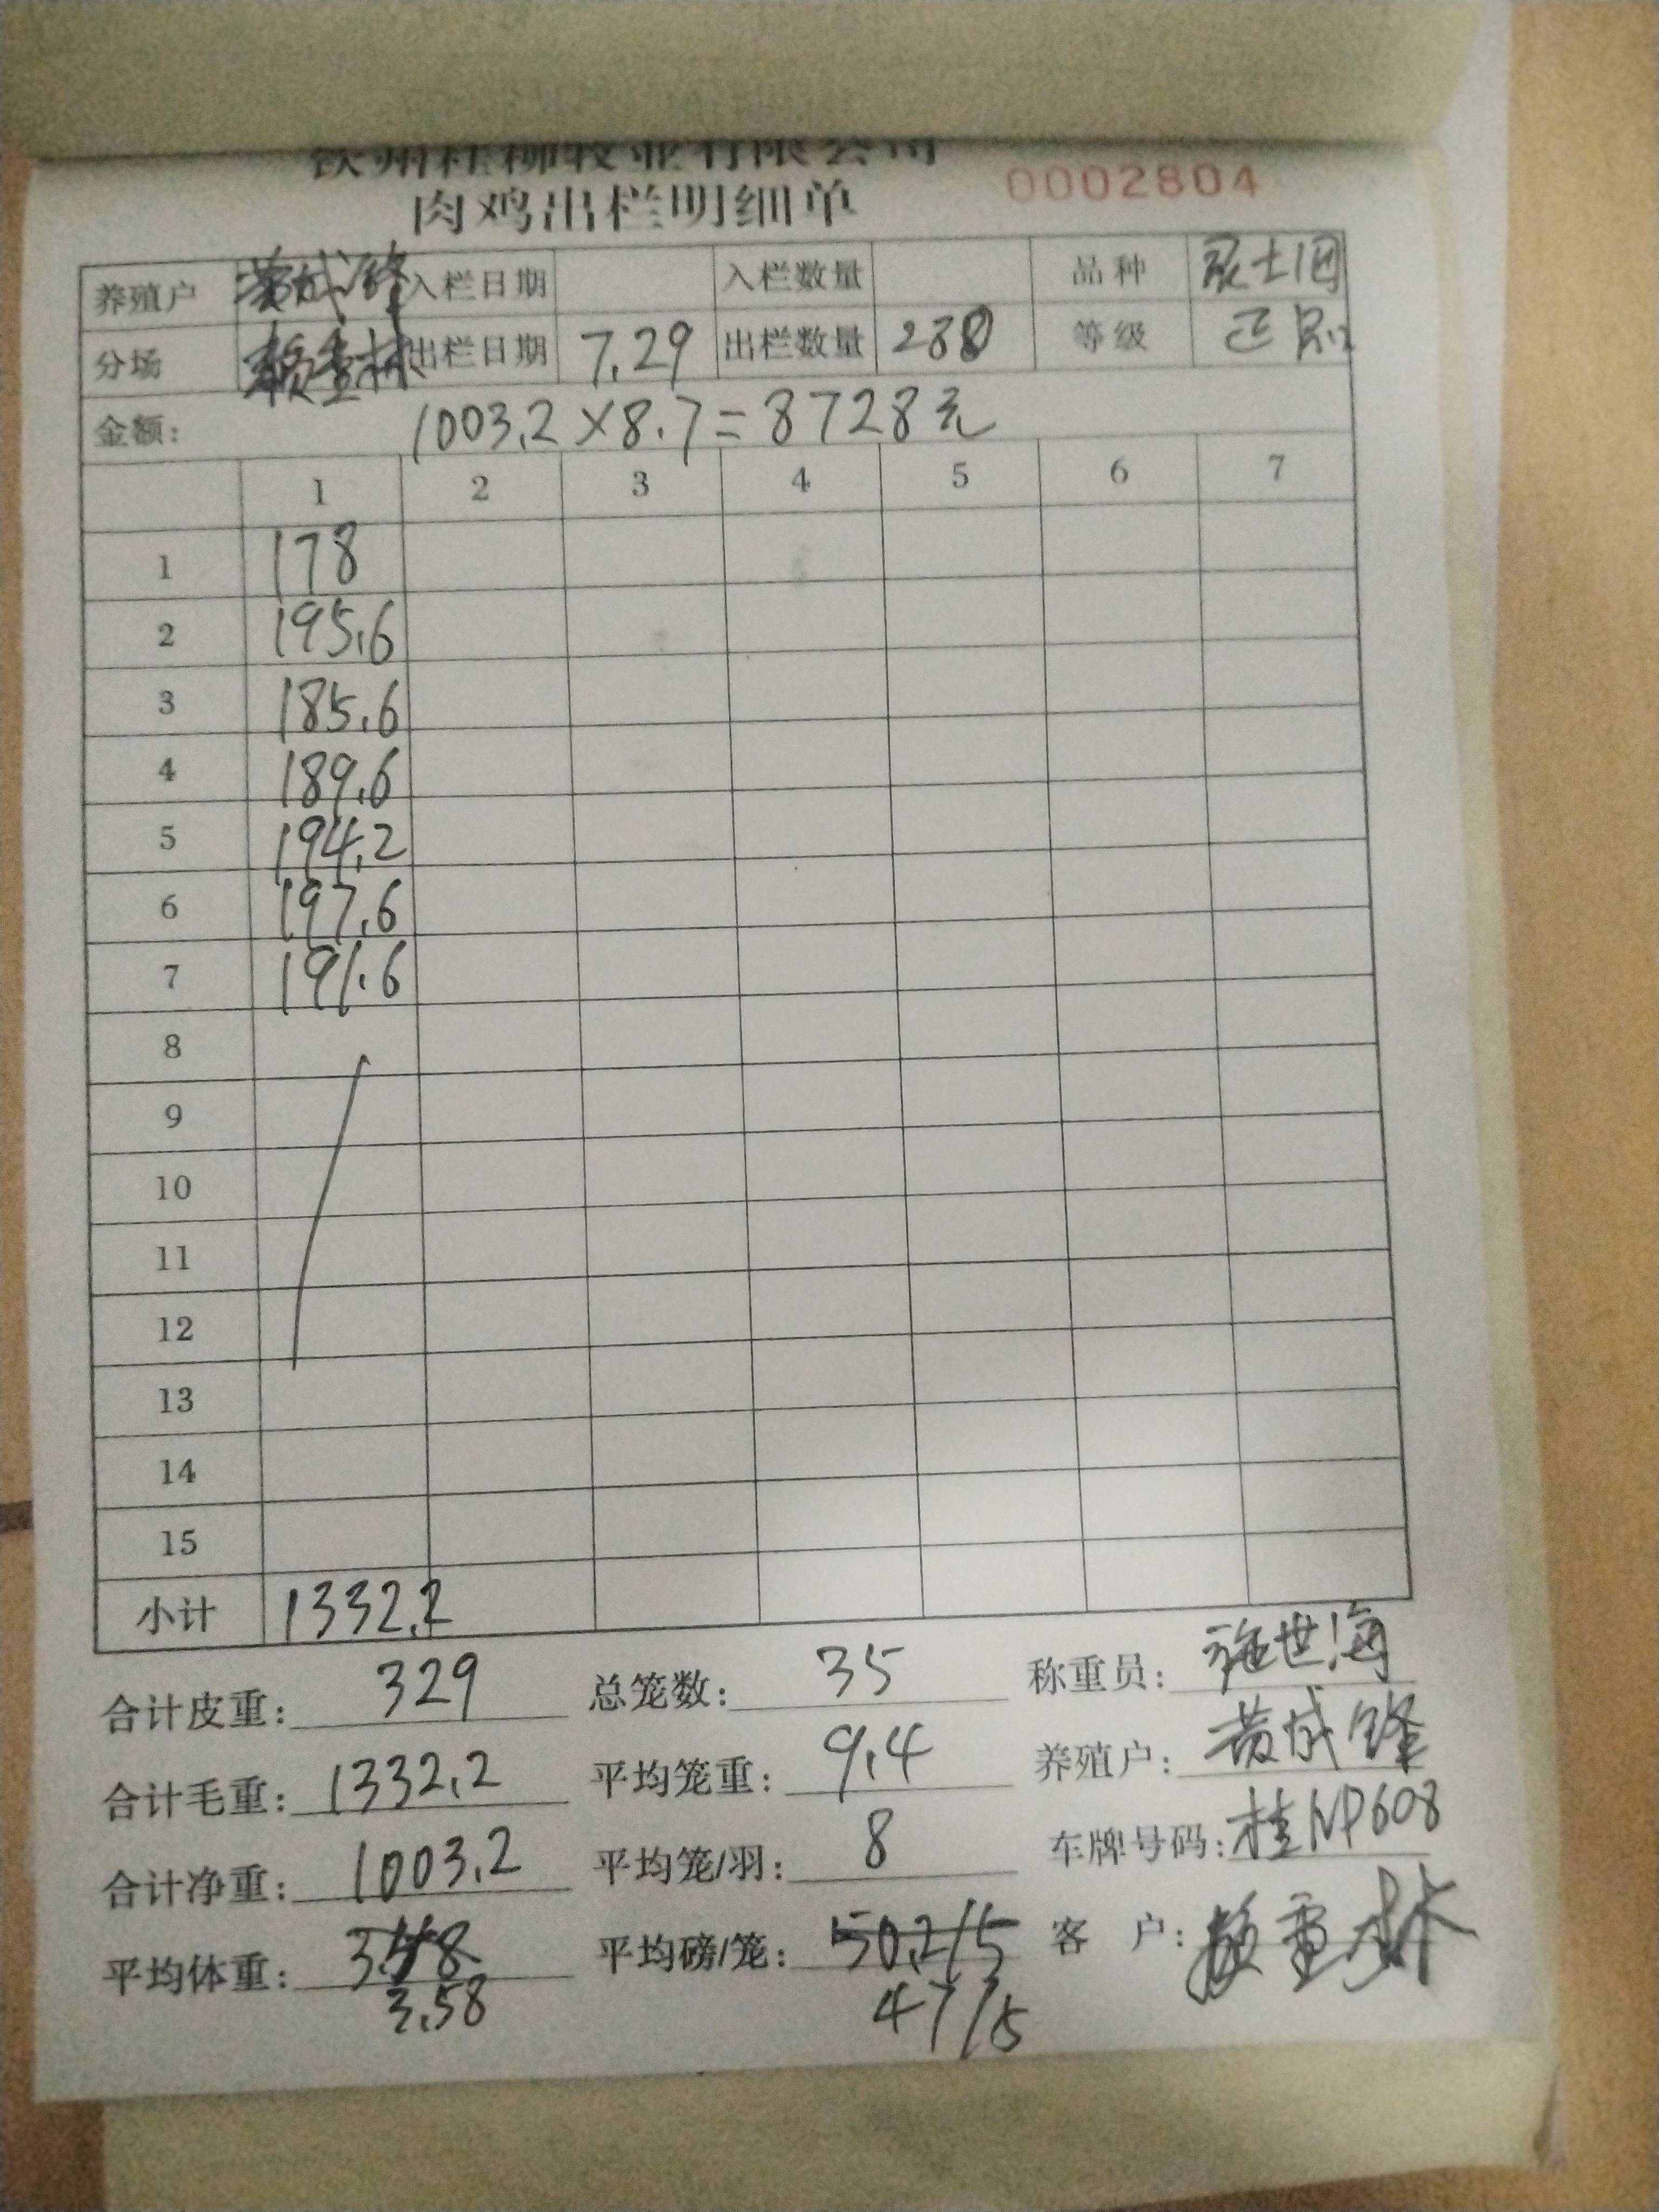 钦州桂柳牧业有限公司
肉鸡出栏明细单 0002804
养殖户 黄成锋 入栏日期 入栏数量 品种
分场 出栏日期 7.29 出栏数量 280 等级 正
金额: 1003.2×8.7=8728元
1 2 3 4 5 6 7
1 178
2 195.6
3 185.6
4 189.6
5 194.2
6 197.6
7 191.6
8
9
10
11
12
13
14
15
小计 1332.2
合计皮重: 329 总笼数: 35 称重员: 施世海
合计毛重: 1332.2 平均笼重: 9.4 养殖户: 黄成锋
合计净重: 1003.2 平均笼/羽: 8 车牌号码: 桂NP608
平均体重: 平均磅/笼: 50.2/5 客 户:
3.58 47/5